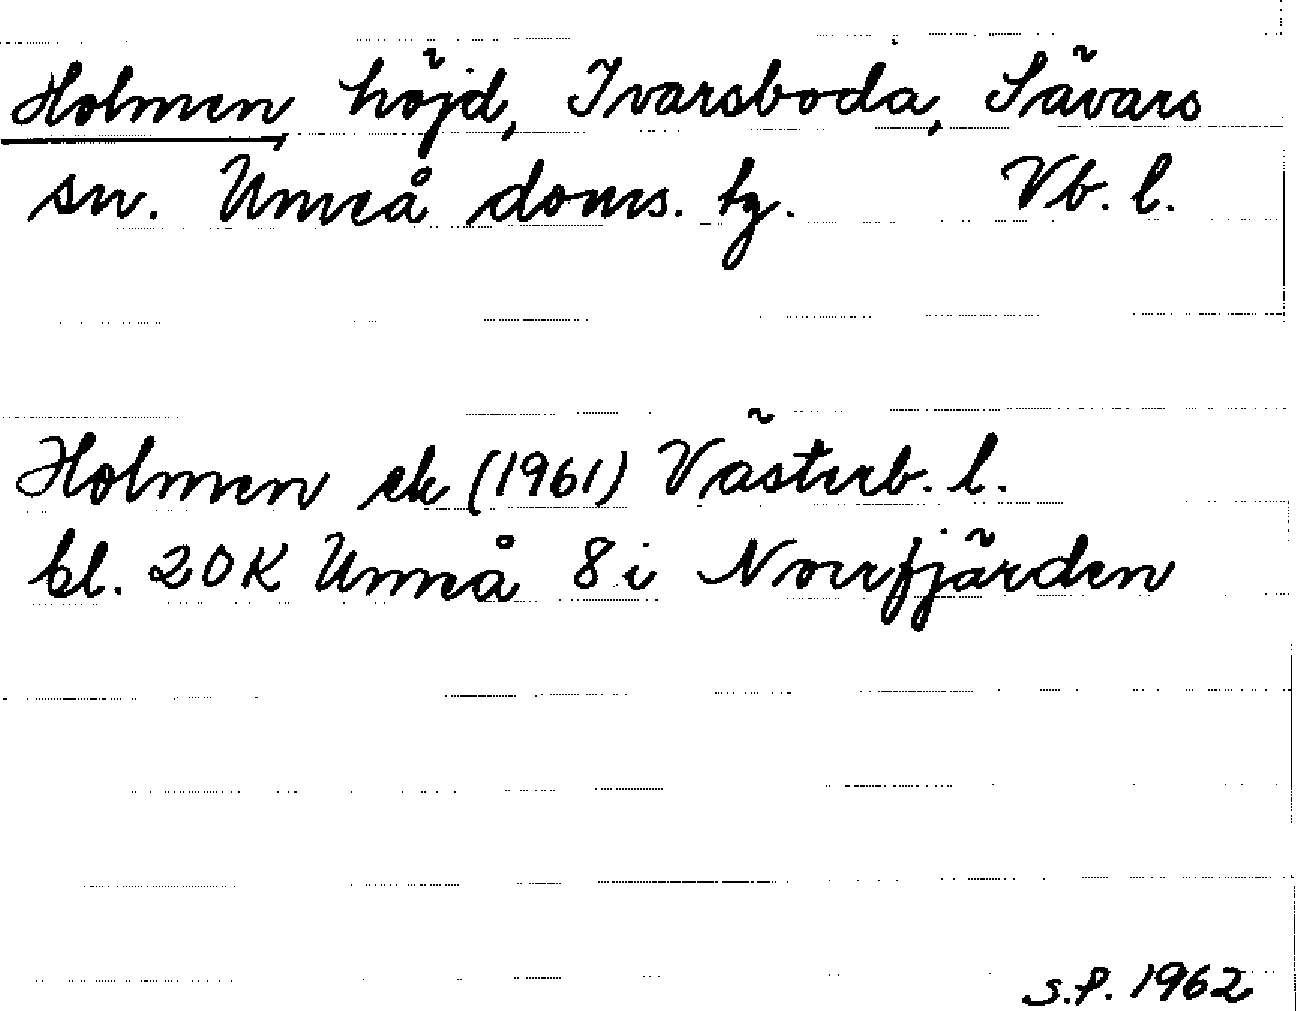 Holmen höjd, Ivarsboda, Sävars
sn. Umeå doms. tg. Vb. l.
Holmen ek (1961) Västerb. l.
bl. 20K Umeå 8 i Norrfjärden
S.P. 1962